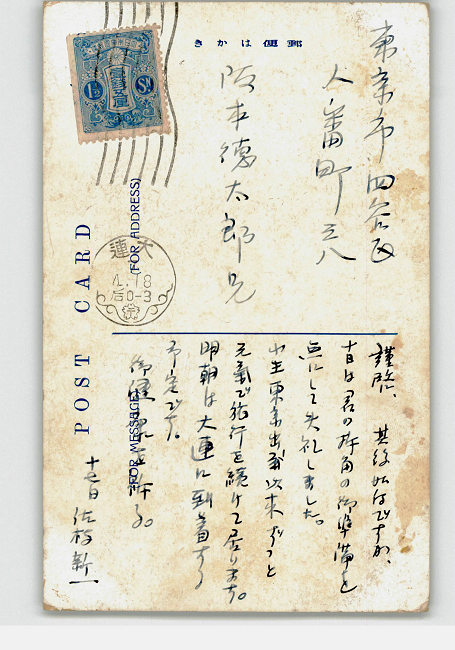 郵便はかき
東京市四谷区
大番町三八
阪本徳太郎兄
謹啓、其後如何ですか、
十日は君の折角の御準備を
点にして失礼しました。
小生東京出発以来ずっと
元気で旅行を続けて居ります。
明朝は大連に到着する
予定です。
御健康を祈る。
十七日 佐枝新一
POST CARD
(FOR ADDRESS)
(FOR MESSAGE)
大連
4.18
后0-3
1½ Sn